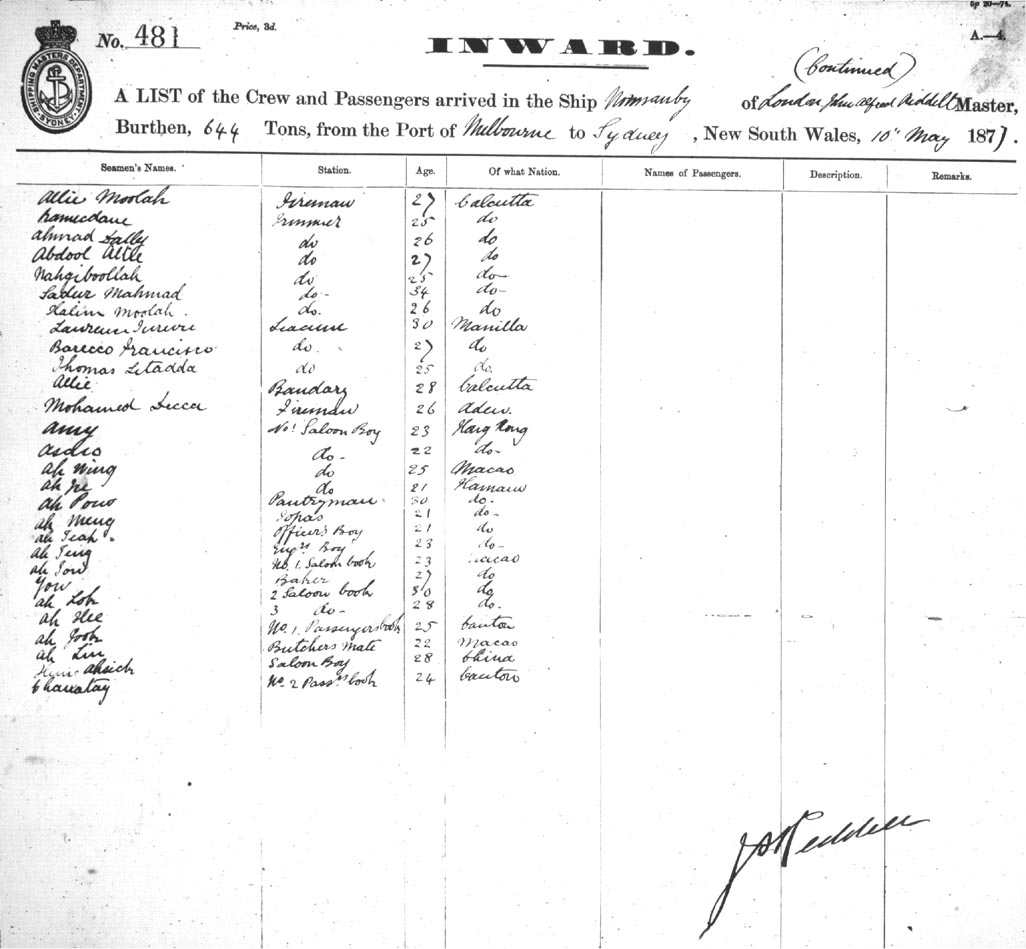 5p 20—74.
No. 481 Price, 3d. A.—4.
INWARD.
SHIPPING MASTERS DEPARTMENT SYDNEY
(Continued)
A LIST of the Crew and Passengers arrived in the Ship Normanby of London, John Alfred Riddell Master,
Burthen, 644 Tons, from the Port of Melbourne to Sydney, New South Wales, 10" May 1877.
Seamen's Names. Station. Age. Of what Nation. Names of Passengers. Description. Remarks.
Allie Moolah Fireman 27 Calcutta
Trimmer 25 do
Ahmad do 26 do
Abdool do 27 do
Nahgiboollah do 25 do
Mahmad do 34 do
Kalim Moolah do. 26 do
30 Manilla
Barecco Francisco do. 27 do
Thomas do 25 do.
Allie Bandary 28 Calcutta
Mohamed Fireman 26 Aden.
Amy No 1 Saloon Boy 23 Hong Kong
do 22 do
Ah Wing do 25 Macao
Ah do 21
Ah Pantryman 30 do.
Ah Meng Topas 21 do
Ah Officer's Boy 21 do
Ah Engrs Boy 23 do
Ah No. 1. Saloon Cook 23 Macao
You Baker 27 do
Ah 2 Saloon Cook 30 do
Ah Hee 3 do 28 do.
Ah No. 1. Passengers Cook 25 Canton
Ah Lin Butchers Mate 22 Macao
Ahsich Saloon Boy 28 China
No. 2 Passrs Cook 24 Canton